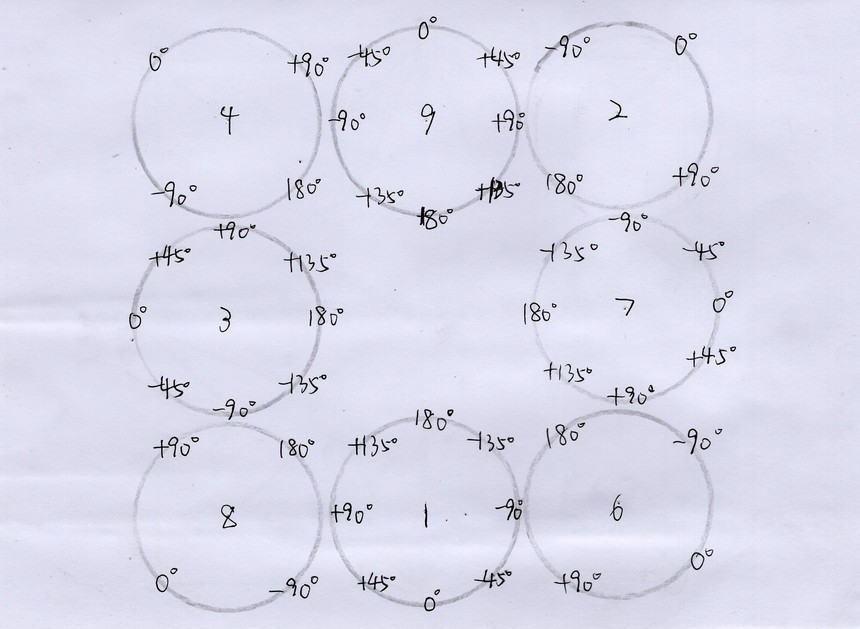 0° +90° 4 -90° 180°
0° -45° +45° -90° 9 +90° +35° 180°
-90° 0° 2 180° +90°
+90° +45° +135° 0° 3 180° -45° -135° -90°
-90° -135° -45° 180° 7 0° +135° +45° +90°
+90° 180° 8 0° -90°
180° +135° -135° +90° 1 -90° +45° -45° 0°
180° -90° 6 +90° 0°